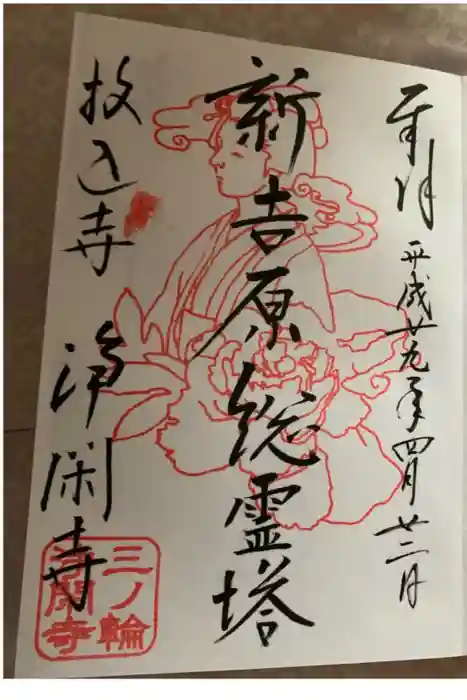 奉拝 平成廿九年四月廿三日
新吉原総霊塔
投込寺 浄閑寺
三ノ輪
浄閑寺